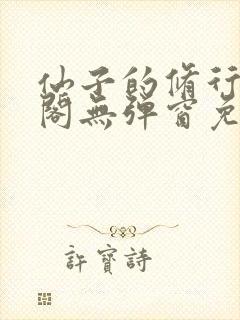 仙子的脩行
閣無彈窗免
許寶詩